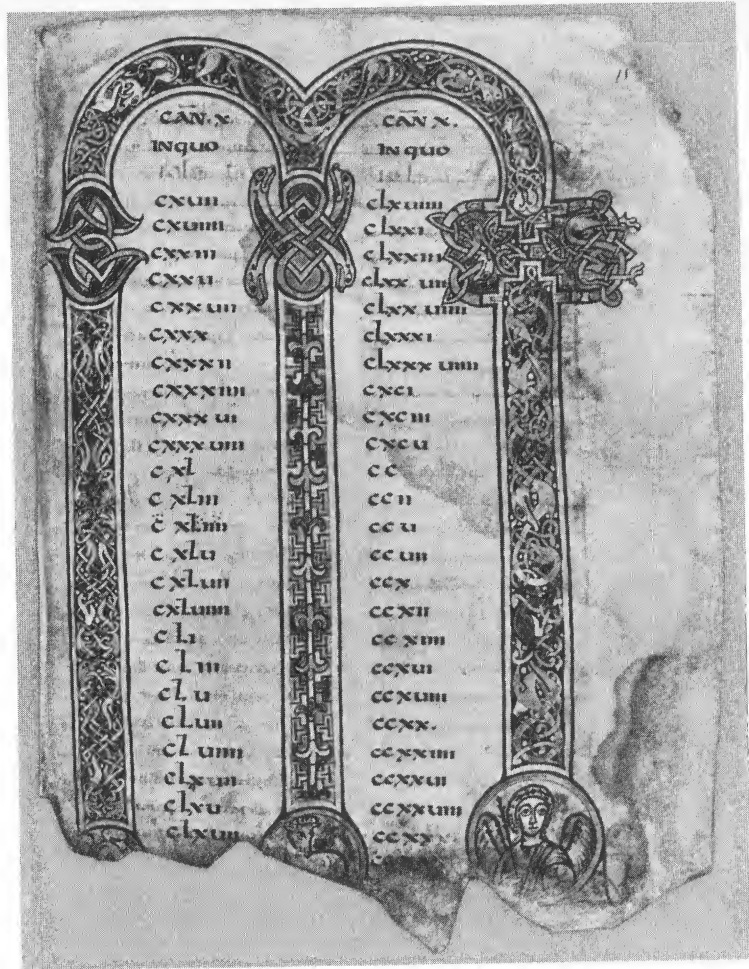 CAN̄. X.
IN QUO
cxuii
cxuiiii
cxxiii
cxxu
cxxuii
cxxx
cxxxii
cxxxiiii
cxxxui
cxxxuiii
cxl
cxliii
cxliiii
cxlu
cxluii
cxluiiii
cli
cliii
clu
cluii
cluiiii
clxiii
clxu
clxuii
CAN̄ X.
IN QUO
clxuiiii
clxxi
clxxiii
clxxuii
clxxuiiii
clxxxi
clxxxuiiii
cxci
cxciii
cxcu
cc
ccii
ccu
ccuii
ccx
ccxii
ccxiiii
ccxui
ccxuiii
ccxx.
ccxxiiii
ccxxuii
ccxxuiiii